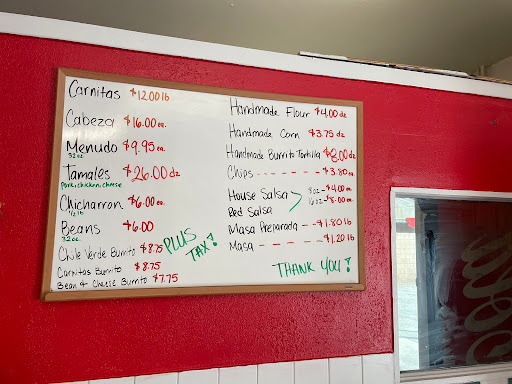 Carnitas $12.00 lb
Cabeza $16.00 ea.
Menudo $9.95 ea.
32 oz.
Tamales $26.00 dz
pork, chicken, cheese
Chicharron $6.00 ea.
1/2 lb
Beans $6.00
32 oz.
Chile Verde Burrito $8.75
Carnitas Burrito $8.75
Bean & Cheese Burrito $7.75
PLUS TAX!
Handmade Flour $4.00 dz
Handmade Corn $3.75 dz
Handmade Burrito Tortilla $8.00 dz
Chips - - - - - - $3.80 ea.
House Salsa 8 oz - $4.00 ea
Red Salsa 16 oz - $8.00 ea.
Masa Preparada - - - $1.80 lb
Masa - - - - - - $1.20 lb
THANK YOU!